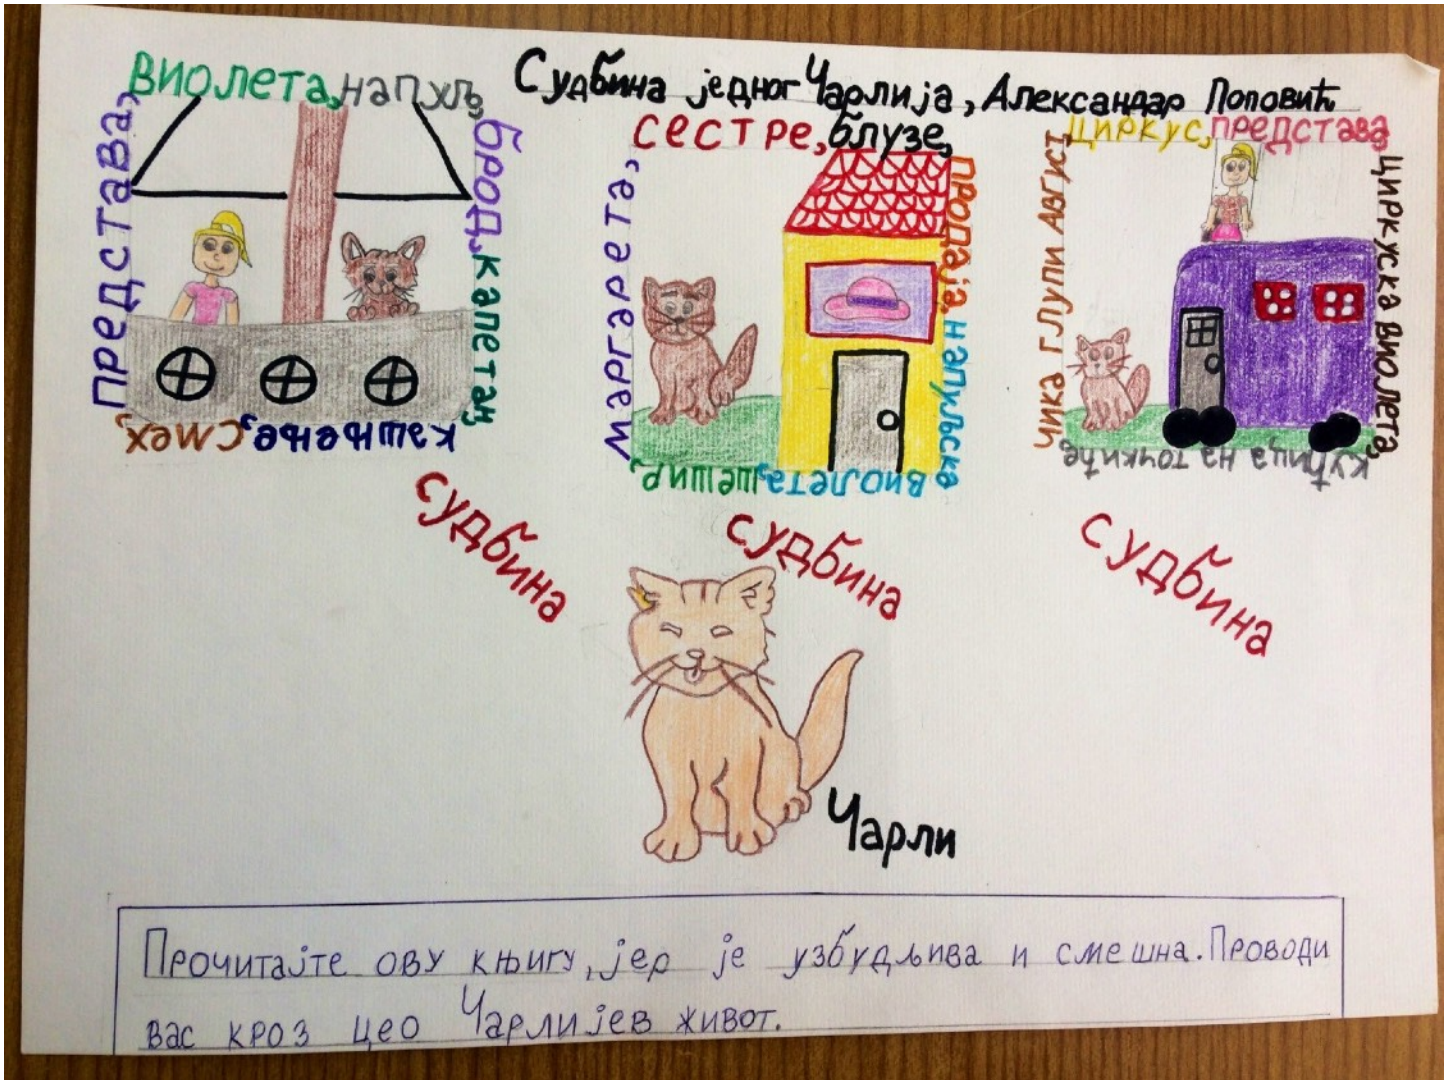 Судбина једног Чарлија, Александар Поповић
Виолета, напуљ,
брод, капетан,
кашњење, смех,
представа,
сестре, блузе,
продаја, напуљска
виолета, шешир,
маргарета,
циркус, представа,
циркуска виолета,
кућица на точкиће,
чика глупи август,
судбина
судбина
судбина
Чарли
Прочитајте ову књигу, јер је узбудљива и смешна. Проводи
вас кроз цео Чарлијев живот.